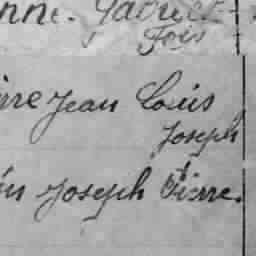 nne. Gabriel
Fois
rre Jean Louis
Joseph
in Joseph Pierre.